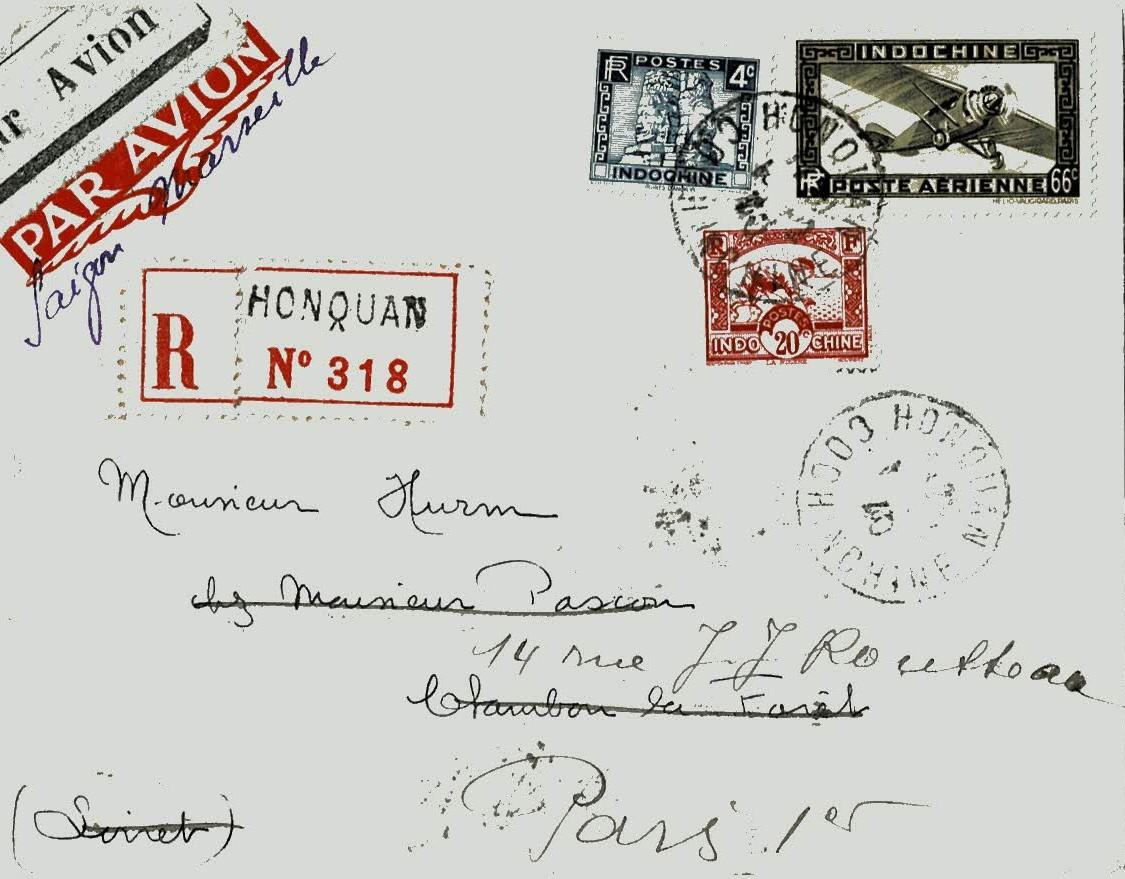 Par Avion
PAR AVION
Saigon Marseille
RF POSTES 4c
INDOCHINE
INDOCHINE
RF POSTE AÉRIENNE 66c
HELIO-VAUGIRARD, PARIS
R F
POSTES
INDO 20c CHINE
LA RIZIERE
HONQUAN
R
Nº 318
HONQUAN
INDOCHINE
Monsieur Hurm
chez Monsieur Pascon
14 rue J. J Rousseau
Chambon la Forêt
(Loiret)
Paris 1er